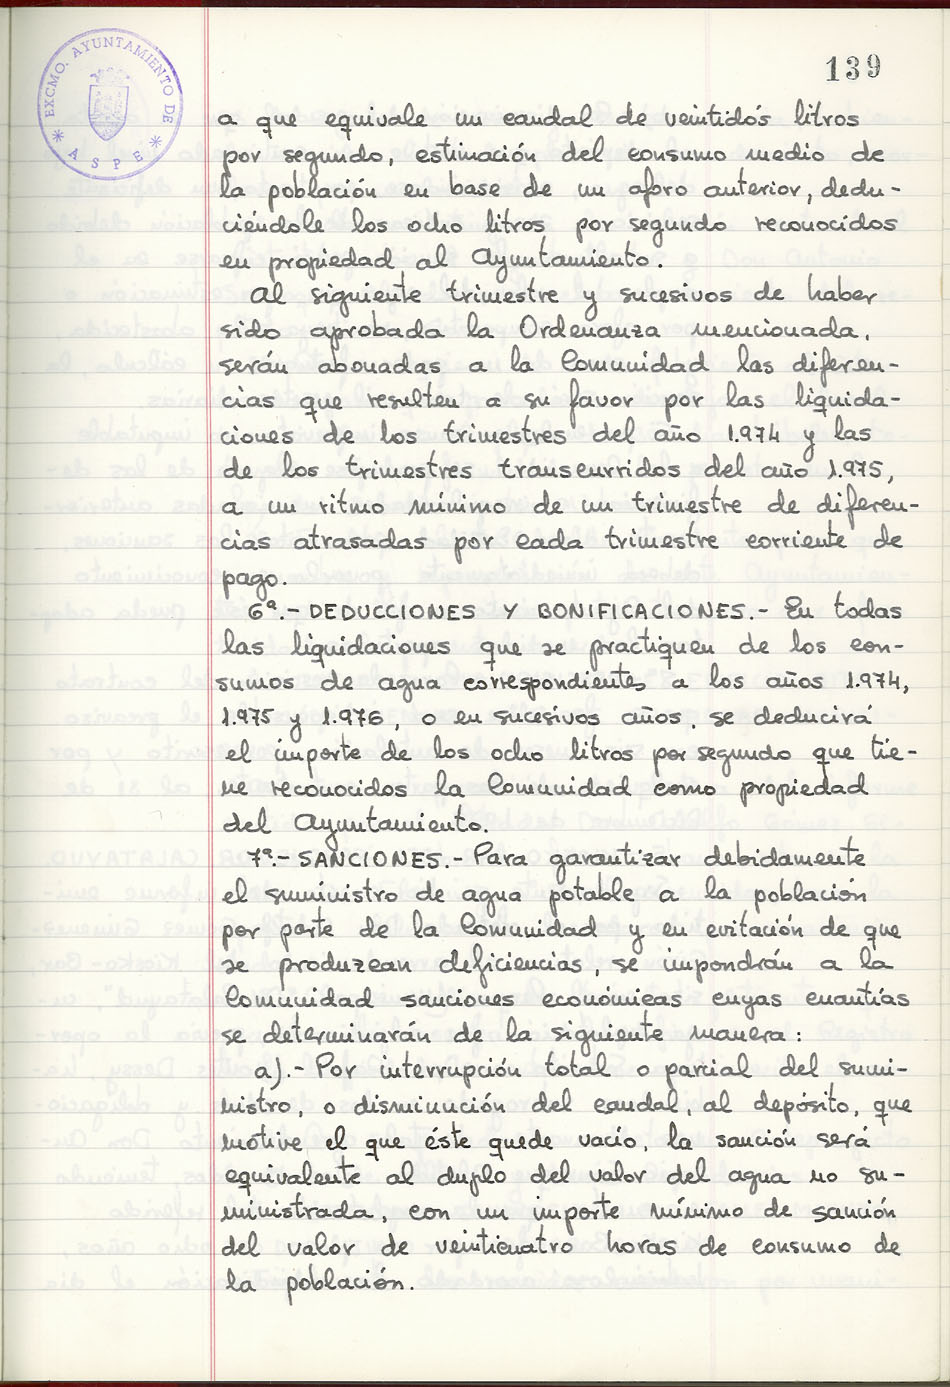 EXCMO. AYUNTAMIENTO DE
* ASPE *
139
a que equivale un caudal de veintidós litros
por segundo, estimación del consumo medio de
la población en base de un aforo anterior, dedu-
ciéndole los ocho litros por segundo reconocidos
en propiedad al Ayuntamiento.
Al siguiente trimestre y sucesivos de haber
sido aprobada la Ordenanza mencionada,
serán abonadas a la Comunidad las diferen-
cias que resulten a su favor por las liquida-
ciones de los trimestres del año 1.974 y las
de los trimestres transcurridos del año 1.975,
a un ritmo mínimo de un trimestre de diferen-
cias atrasadas por cada trimestre corriente de
pago.
6ª.- DEDUCCIONES Y BONIFICACIONES.- En todas
las liquidaciones que se practiquen de los con-
sumos de agua correspondientes a los años 1.974,
1.975 y 1.976, o en sucesivos años, se deducirá
el importe de los ocho litros por segundo que tie-
ne reconocidos la Comunidad como propiedad
del Ayuntamiento.
7ª.- SANCIONES.- Para garantizar debidamente
el suministro de agua potable a la población
por parte de la Comunidad y en evitación de que
se produzcan deficiencias, se impondrán a la
Comunidad sanciones económicas cuyas cuantías
se determinarán de la siguiente manera:
a).- Por interrupción total o parcial del sumi-
nistro, o disminución del caudal, al depósito, que
motive el que éste quede vacío, la sanción será
equivalente al duplo del valor del agua no su-
ministrada, con un importe mínimo de sanción
del valor de veinticuatro horas de consumo de
la población.